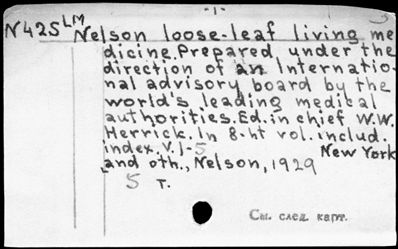 -1-
N425 LM Nelson loose-leaf living me
dicine. Prepared under the
direction of an Internatio-
nal advisory board by the
world's leading medical
authorities. Ed. in chief W.W.
Herrick. In 8-ht vol. includ.
index. V. 1-5 New York
and oth., Nelson, 1929
5 т.
См. след. карт.